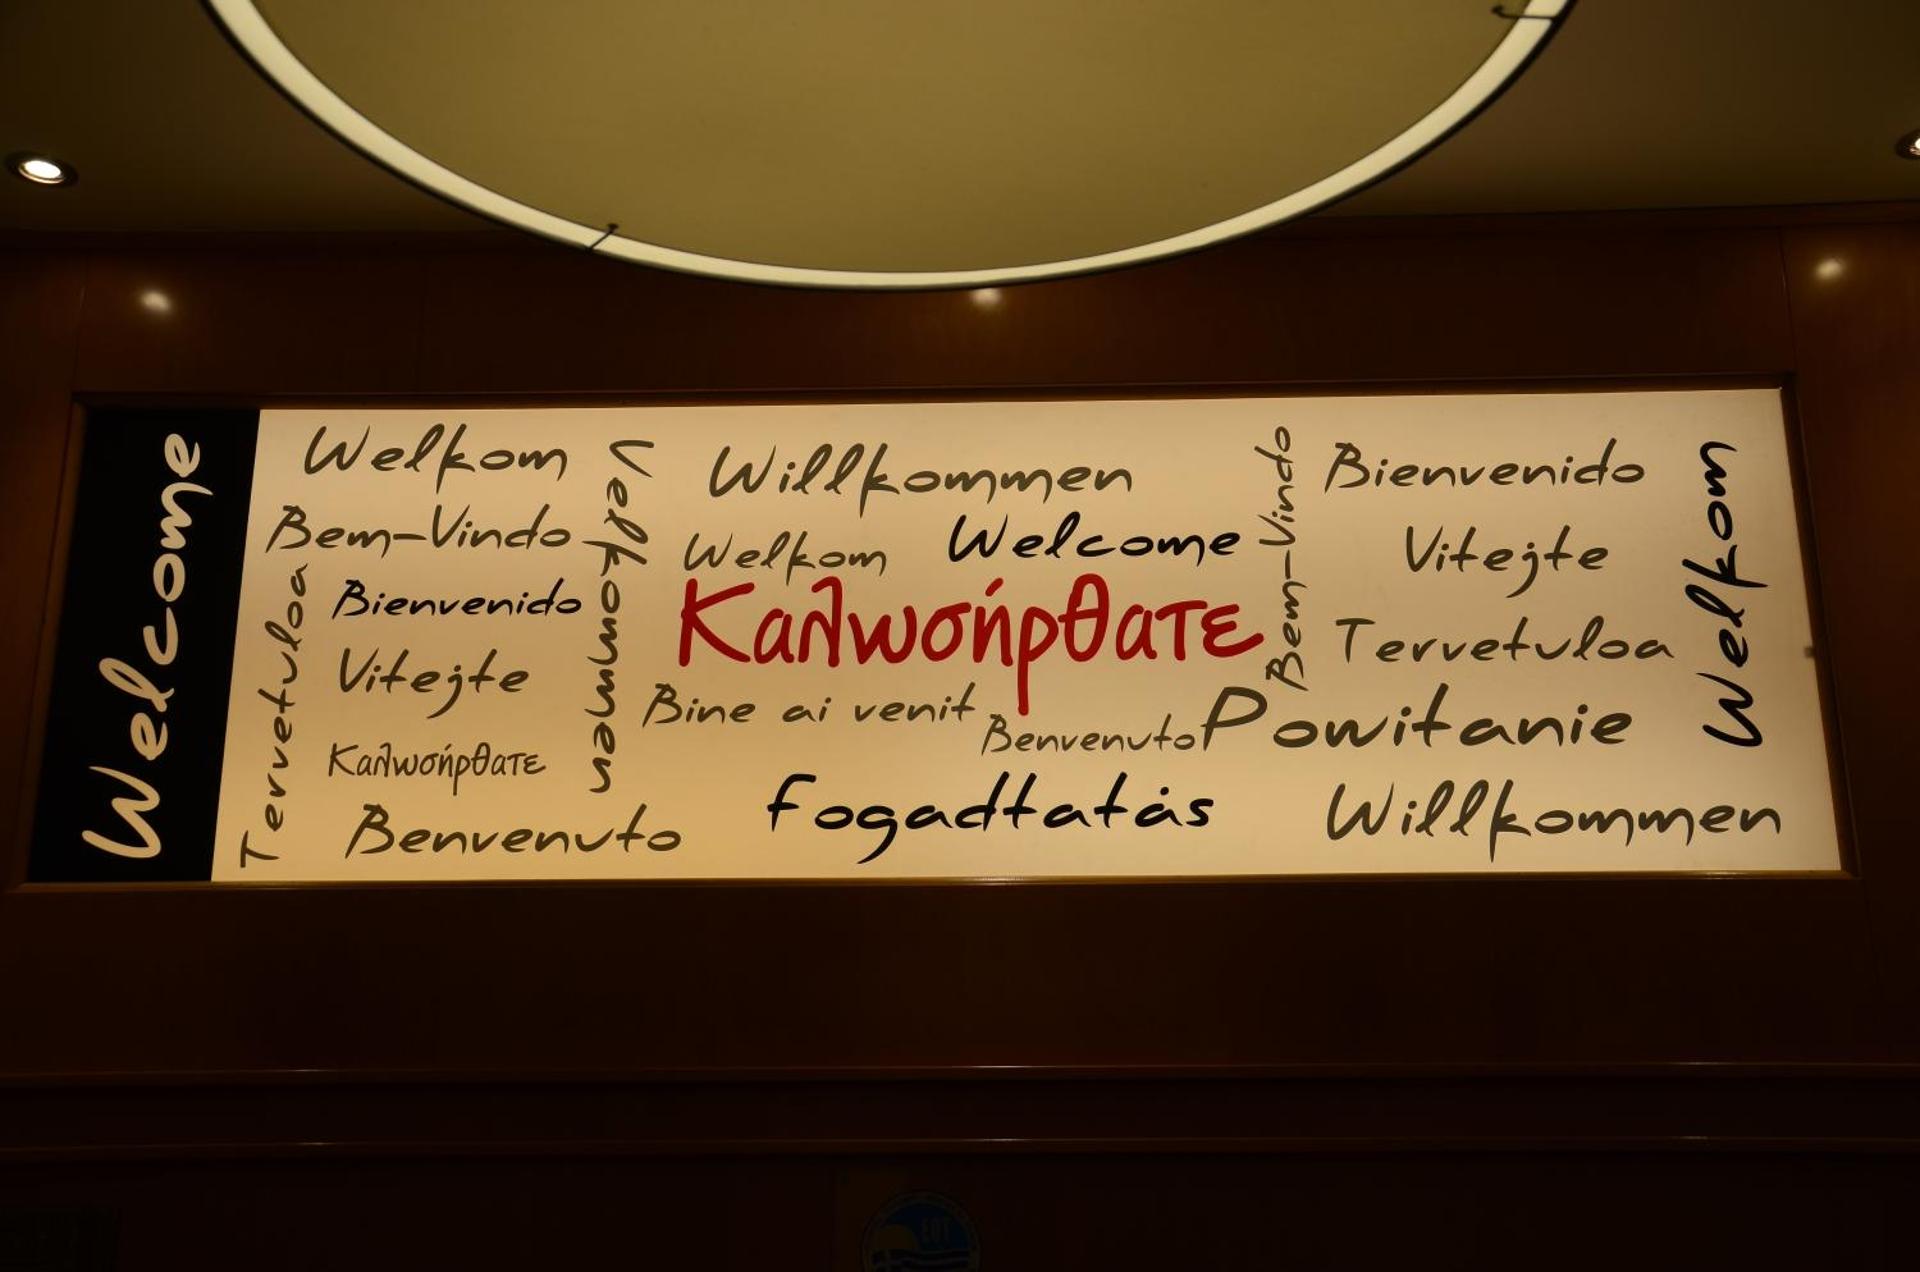 Welcome
Welkom
Bem-Vindo
Tervetuloa
Bienvenido
Vitejte
Καλωσήρθατε
Benvenuto
Velkommen
Willkommen
Welkom
Welcome
Καλωσήρθατε
Bine ai venit
Benvenuto
Fogadtatás
Bem-Vindo
Bienvenido
Vitejte
Tervetuloa
Powitanie
Willkommen
Welkom
EOT